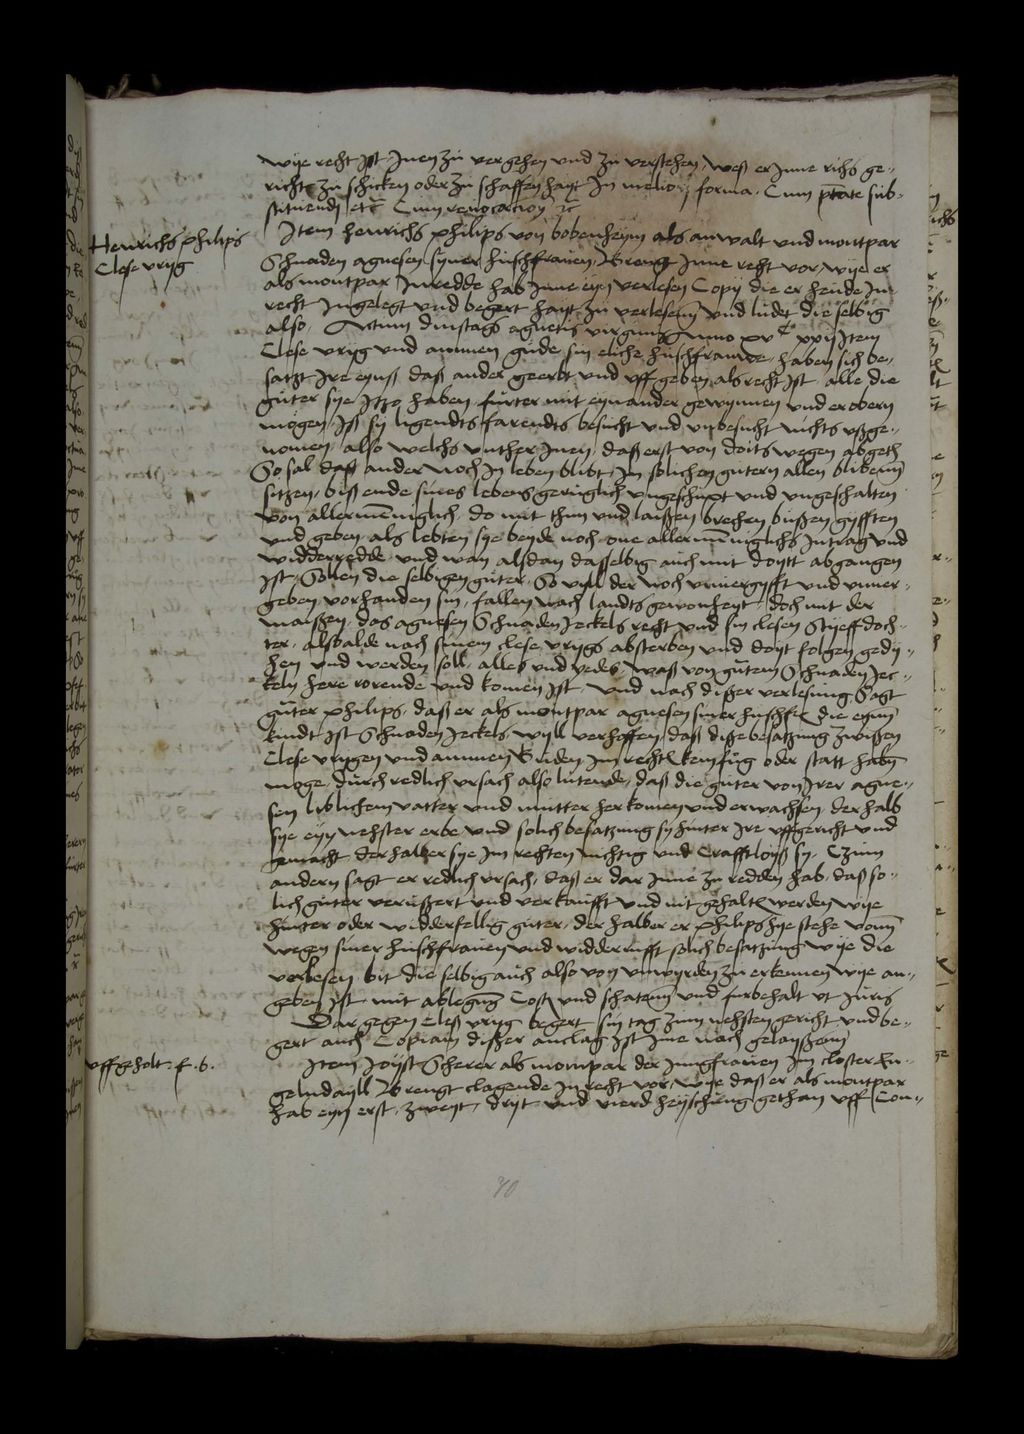 wije recht ist Jnen zu vergehen und zu verstehen, weß er Jnne richs ge-
richt zu schicken oder zu schaffen hait Jn meliori forma. Cum ptate sub-
stituendj etc Cum revocacion etc
Henrichs philips
Clese vryg
Item henrichs philips von bobenheym als anwalt und montpar
Schnaden agnesen syner huschfrauen, Brengt Jnne recht vor, wije er
als montpar Jnredde hab Jnne eyn verlesen Copij die er heude Jn
recht Jngelegt und begert hait zu verlesenn und ludet die selbig
also, Actum dinstags agnetis virginis Anno xvc xxij Item
Clese vryg und ammen gude sin eliche huschfrauwe, haben sich be-
satzt Jre eynß daß ander geerbt und uff geben als recht Jst alle die
guter sye Jtzo haben furter mit eynander gewynnen und erobern
mogen, Jst sy ligendts farendts besucht und unbesucht nichts ußge-
nomen, also welchs unther Jnen, daß erst von doits wegen abgeth
So sal daß ander noch Jn leben blibt, Jn solichen gutern allen blibenn
sitzen, biß ende sines lebens geruglich ungeschupt und ungeschalten
von allermenniglich, do mit thun und laißen brechen bußen gyfften
und geben als lebten sye beyde noch one allermenniglichs Jntrag und
widderredde, und wan alsdan dasselbig auch mit doytt abgangen
Jst, Sollen die selbigen guter, So vyll der noch unvergyfft und unver-
geben vorhanden sin, fallen nach landts gewonheyt, doch mit der
maißen, das agnesen Schnaden Jeckels recht und sin clesen Styeffdoch-
ter, alsbalde nach sinem clese vrygs absterben und doyt folgen gedy-
hen und werden soll, alles und yedes, waß von gutern Schnaden Jec-
keln here rorende und komen Jst, und nach dißer verlesung, Sagt
guter philips, daß er als montpar agnesen siner huschf die eynig
kindt Jst Schnaden Jeckels, wyll verhoffen, daß diße besatzung zwißen
Clese vrygen und ammen Guden Jm recht kein fug oder statt habn
moge, durch redlich ursach also lutende, daß die guter von Jrer agne-
sen liblichem vatter und mutter her komen und erwachsen, der halb
sye eyn nehster erbe und solich besatzung hinter Jre uffgericht und
gemacht, der halber sye Jm rechten nichtig und Craffloyß sy, Czum
andern sagt er redlich ursach, daß er dar Jnne zu redden hab, daß so-
lich guter verußert und verkaufft und nit gehalt werden wije
hinter oder widderfellig guter, der halber er philips hye stehe vonn
wegen siner huschfrauen und widderrufft solich besatzung wije die
verlesen, bit die selbig auch also von unwyrden zu erkennen wije an-
geben Jst mit ablegung Cost und schadenn und furbehalt ut Juris
Dar gegen Cleß vryg begert sin tag zum nehsten gericht und be-
gert auch Copiam dißer anclag Jst Jme nach gelaißenn
uffgeholt. f. 6.
Item Joyst Scherer als montpar der Jungfrauen Jm closter En-
gelndayll Brengt clagende Jn recht vor, wye daß er als montpar
hab eyn erst, zweyt, dryt und vierd heyschung gethan uff Con-
70